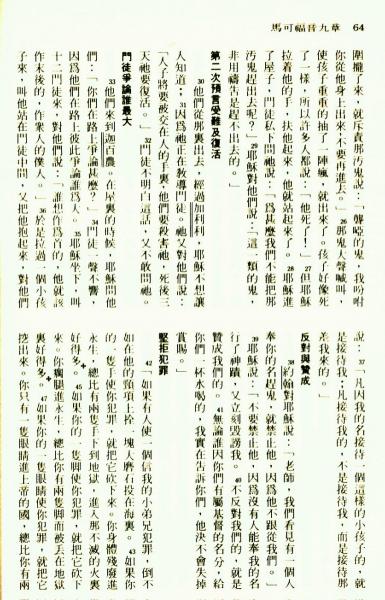 馬可福音九章 64
圍攏了來,就斥責那汚鬼說:「聾啞的鬼,我吩咐
你從他身上出來,不要再進去。」26那鬼大聲喊叫,
使孩子重重的抽了一陣瘋,就出來了。孩子好像死
了一樣,所以許多人都說:「他死了!」27但耶穌
拉着他的手,扶他起來,他就站起來了。28耶穌進
了屋子,門徒私下問祂說:「爲甚麼我們不能把那
汚鬼趕出去呢?」29耶穌對他們說:「這一類的鬼,
非用禱告是趕不出去的。」
第二次預言受難及復活
30他們從那裏出去,經過加利利,耶穌不想讓
人知道;31因爲祂正在教導門徒。祂又對他們說:
「人子將要被交在人的手裏,他們要殺害祂,死後三
天祂要復活。」32門徒不明白這話,又不敢問祂。
門徒爭論誰最大
33他們來到迦百農。在屋裏的時候,耶穌問他
們:「你們在路上爭論甚麼?」34門徒一聲不響,
因爲他們在路上彼此爭論誰爲大。35耶穌坐下,叫
十二門徒來,對他們說:「誰想作爲首的,他就該
作末後的,作衆人的僕人。」36於是拉過一個小孩
子來,叫他站在門徒中間,又把他抱起來,對他們
說:37「凡因我的名接待一個這樣的小孩子的,就
是接待我;凡接待我的,不是接待我,而是接待那
差我來的。」
反對與贊成
38約翰對耶穌說:「老師,我們看見有一個人
奉你的名趕鬼,就禁止他,因爲他不跟從我們。」
39耶穌說:「不要禁止他,因爲沒有人能奉我的名
行了神蹟,又立刻毀謗我。40不反對我們的,就是
贊成我們的。41無論誰因你們有屬基督的名分,給
你們一杯水喝的,我實在告訴你們,他決不會失掉
賞賜。」
堅拒犯罪
42「如果有人使一個信我的小弟兄犯罪,倒不
如在他的頸項上拴一塊大磨石投在海裏。43如果你
的一隻手使你犯罪,就把它砍下來。你身體殘廢進
永生,總比有兩隻手下到地獄,進入那不滅的火裏
好得多。45如果你的一隻脚使你犯罪,就把它砍下
來。你瘸腿進永生,總比你有兩隻脚而被丟在地獄
裏好得多。47如果你的一隻眼睛使你犯罪,就把它
挖出來。你只有一隻眼睛進上帝的國,總比你有兩